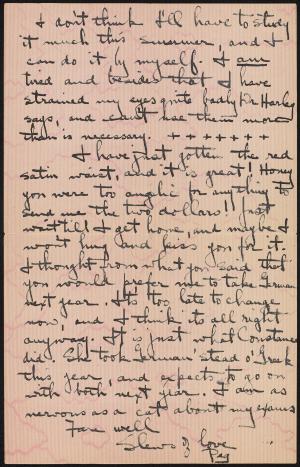 I don't think I'll have to study
it much this summer, and I
can do it by myself. I am
tired and besides that I have
strained my eyes quite badly Dr. Harley
says, and can't use them more
than is necessary. + + + + + +
I have just gotten the red
satin waist, and it is great! Honey
you were too anglic for anything to
send me the two dollars! Just
wait till I get home, and maybe I
won't hug and kiss you for it.
I thought from what you said that
you would prefer me to take German
next year. Its too late to change
now, and I think its all right
anyway. It is just what Constance
did. She took German 'stead o' Greek
this year, and expects to go on
with both next year. I am as
nervous as a cat about my exams
Fare well
Slews of love
Peg